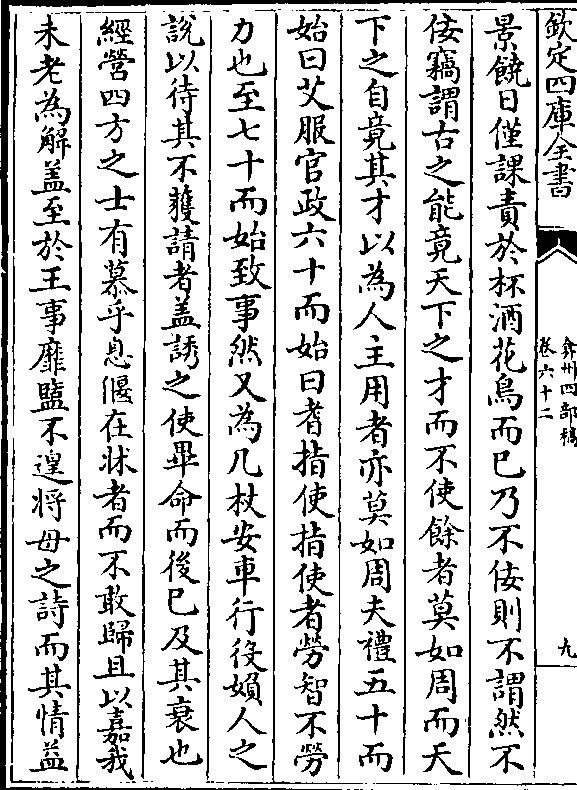 欽定四庫全書
弇州四部稿
卷六十二
九
景饒日僅課責於杯酒花鳥而已乃不佞則不謂然不
佞竊謂古之能竟天下之才而不使餘者莫如周而天
下之自竟其才以為人主用者亦莫如周夫禮五十而
始曰艾服官政六十而始曰耆指使指使者勞智不勞
力也至七十而始致事然又為几杖安車行役婦人之
說以待其不獲請者盖誘之使畢命而後已及其衰也
經營四方之士有慕乎息偃在牀者而不敢歸且以嘉我
未老為解盖至於王事靡盬不遑將母之詩而其情益